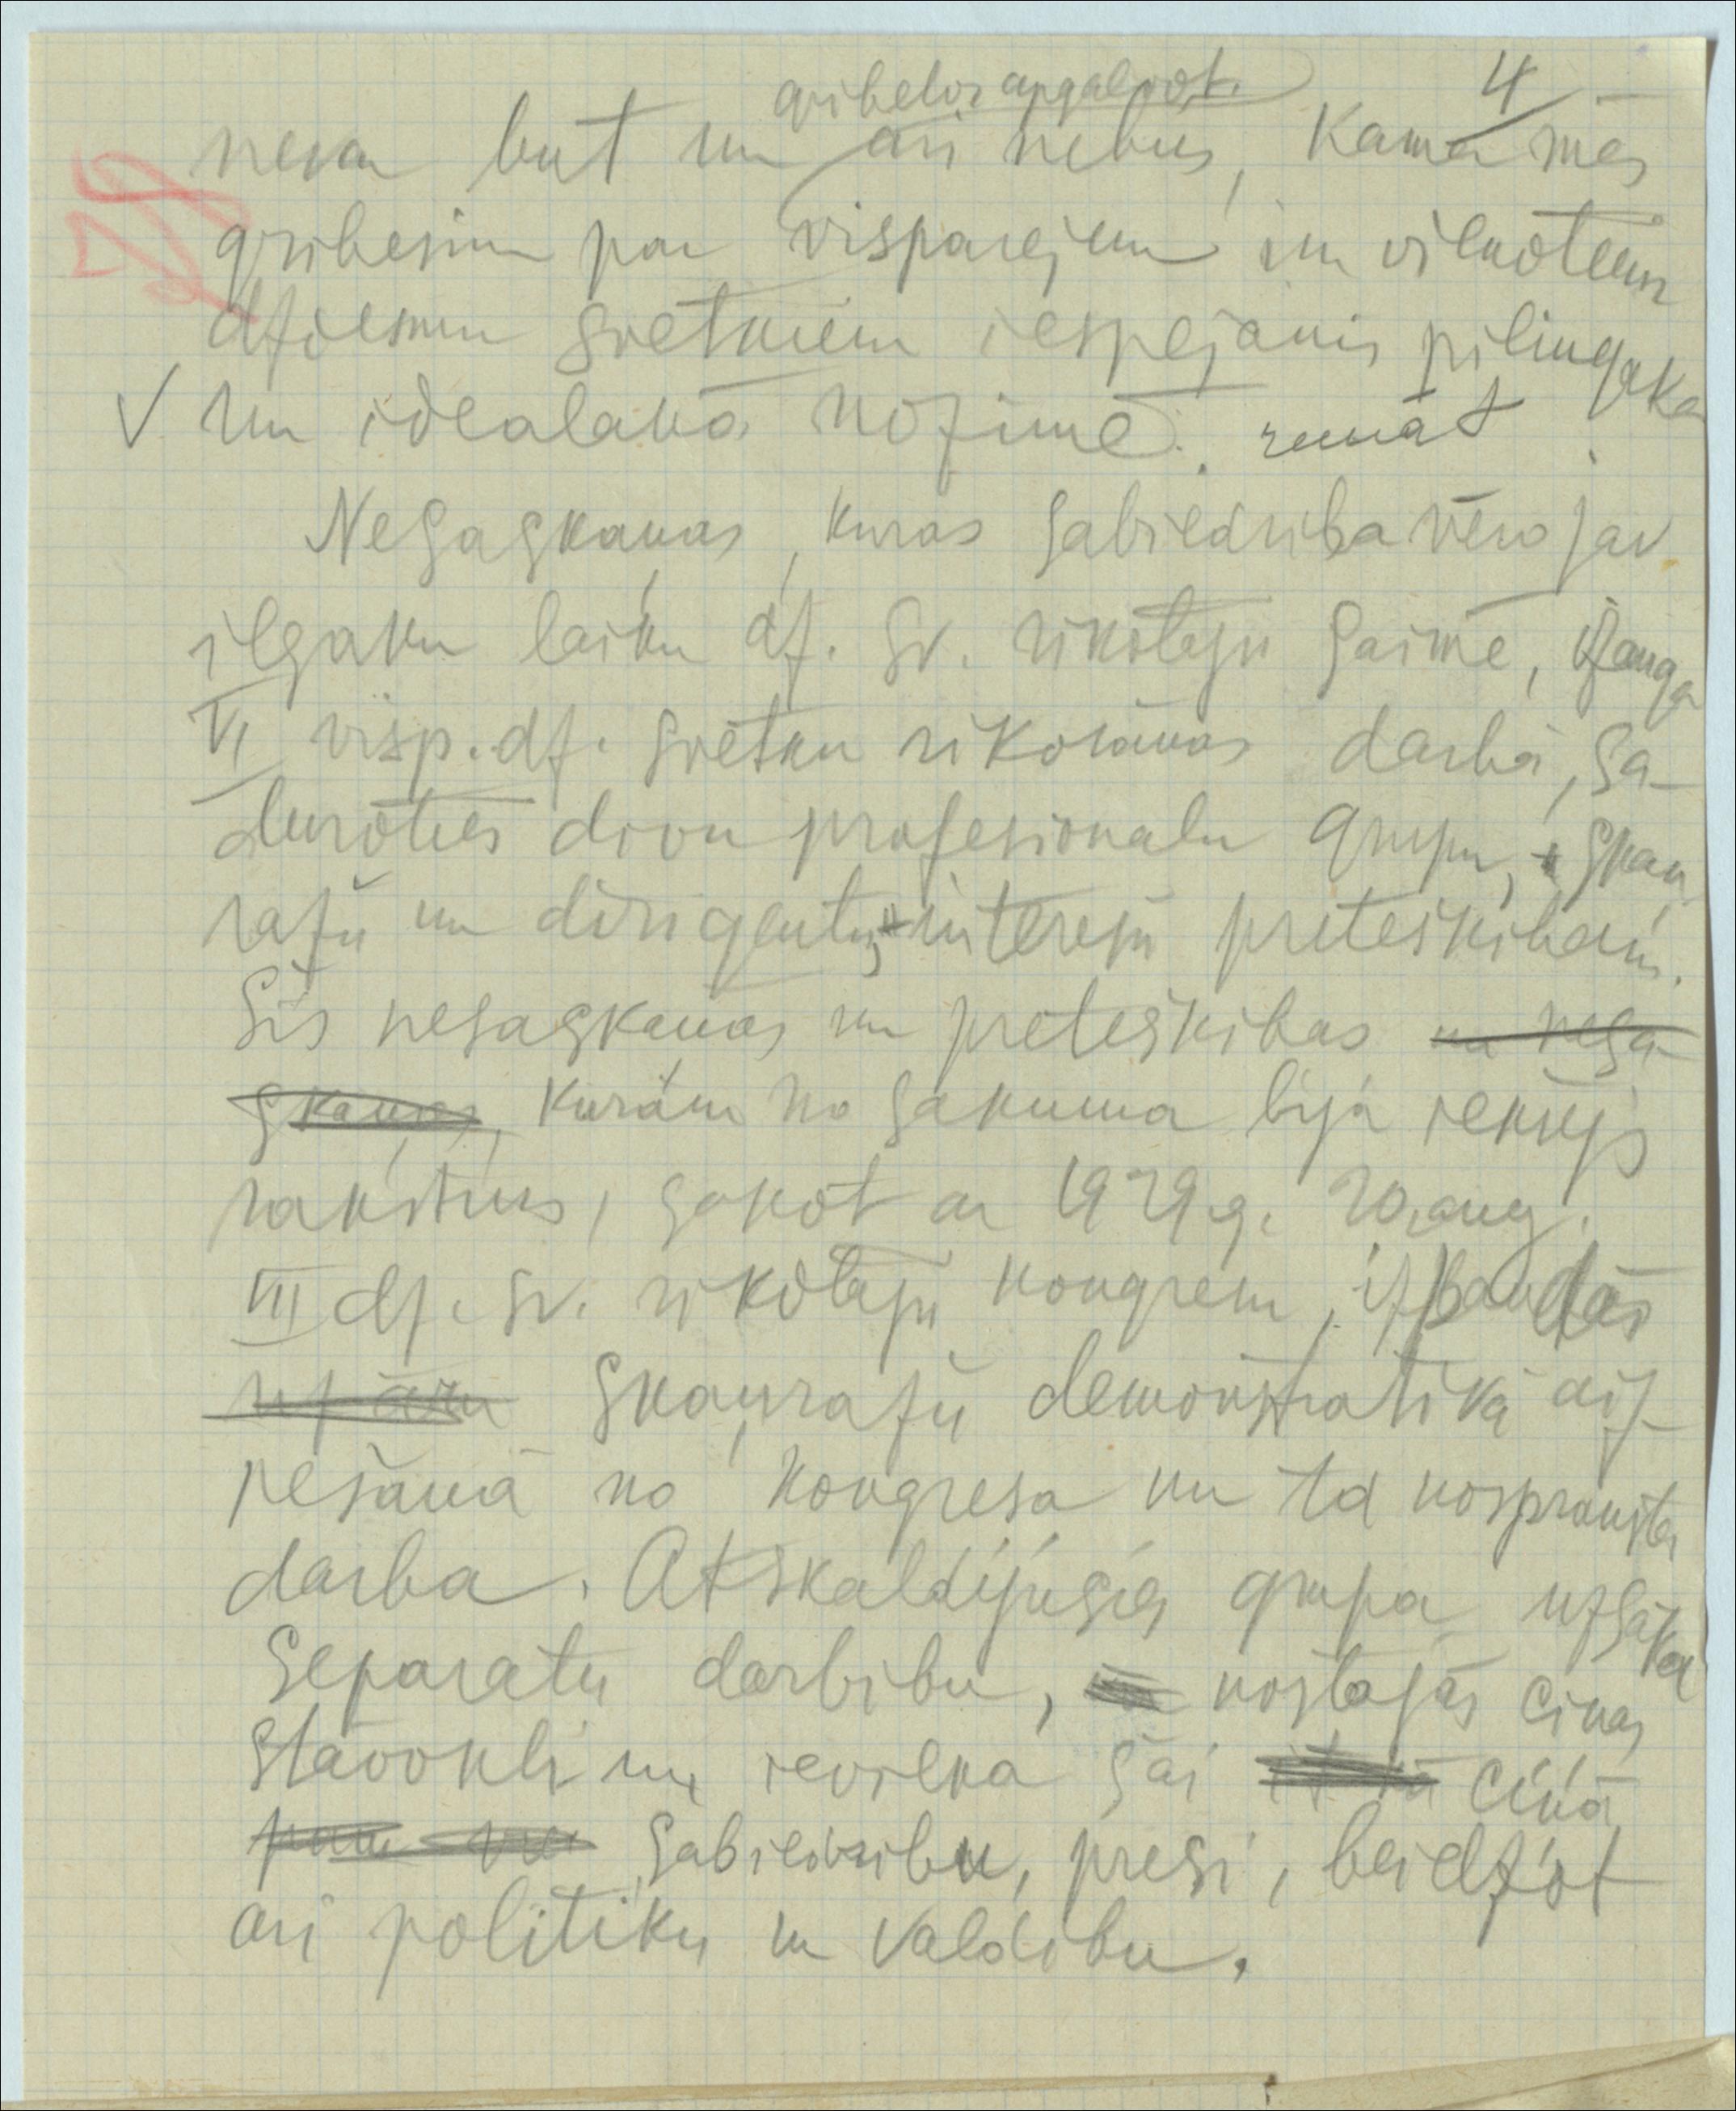 4
gribētos apgalvot
nevar būt un arī nebūs, kamēr mēs
gribēsim par vispārējiem un vienotiem
dziesmu svētkiem iespējamis pilnīgākā
V un ideālākā nozīmē. runāt.
Nesaskaņas, kuras sabiedrība vēro jau
ilgāku laiku dz. sv. rīkotāju saimē, izauga
VI visp. dz. svētku rīkošanas darbā, sa-
duroties divu profesionālu grupu, skaņ
ražu un dirigentu, interešu pretešķībām.
Šīs nesaskaņas un pretešķības un nesa-
skaņas, kurām no sākuma bija iekšējs
raksturs, sākot ar 1929.g. 20. aug.
III dz. sv. rīkotāju kongresu, izpaudās
skaņražu demonstratīvā aiz-
iešanā no kongresa un tā nospraustā
darba. Atskaldījusies grupa uzsāka
separātu darbību, nostājās cīņas
stāvoklī un ievilka šai cīņā
sabiedrību, presi, beidzot
arī politiķus un valdību.